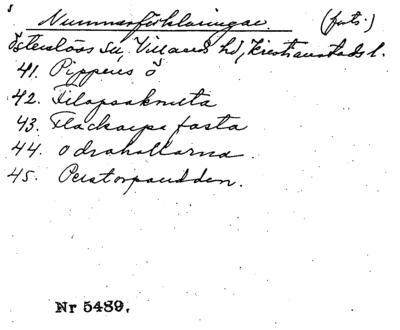 Nummerförklaringar. (forts.)
Österslövs sn, Villands hd, Kristianstads l.
41. Pippens ö
42. Filapsaknuta
43. Flackarps fasta
44. Odrahallarna.
45. Perstorpaudden.
Nr 5489.